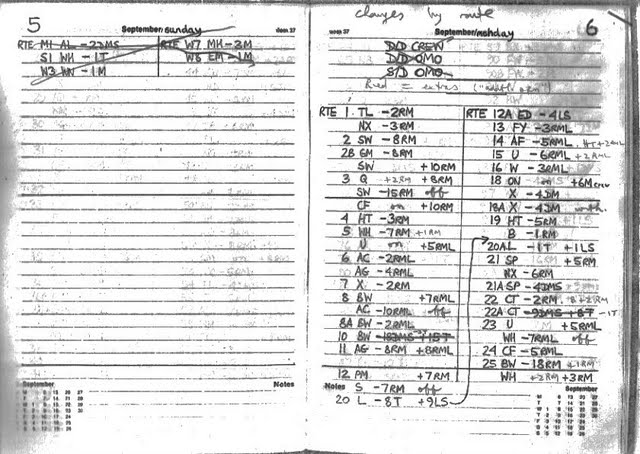 5
September/sunday
week 37
RTE M1 AL - 23MS RTE W7 MH - 3M
S1 WH - 1T W8 EM - 1M
W3 WN - 1M
September
Notes
changes by route
6
week 37
September/monday
D/D CREW
D/D OMO
S/D OMO
Red = extras
RTE 1. TL - 2RM
NX - 3RM
2 SW - 8RM
2B GM - 8RM
SW +10RM
3 Q +2RM +8RM
SW - 15RM off
CF on +10RM
4 HT - 3RM
5 WH - 7RM +1RM
U on +5RML
6 AC - 2RML
AG - 4RML
7 X - 2RM
8 BW +7RML
AC - 10RML off
8A BW - 2RML
10 BW - 18DMS + 15T
11 AG - 8RM +8RML
12 PM +7RM
Notes S - 7RM off
20 L - 8T +9LS
RTE 12A ED - 4LS
13 FY - 3RML
14 AF - 5RML HT+2RML
15 U - 6RML +2RML
16 W - 3RML
18 ON +6M crew
X - 4DM
18A X - 4DM
19 HT - 5RM
B - 1RM
20AL - 1T +1LS
21 SP +5RM
NX - 6RM
21A SP - 4DMS
22 CT - 2RM
22A CT - 9DMS + 8T - 1T
23 U +5RML
WH - 7RML off
24 CF - 5RML
25 BW - 18RM +1RM
WH +2RM +3RM
September